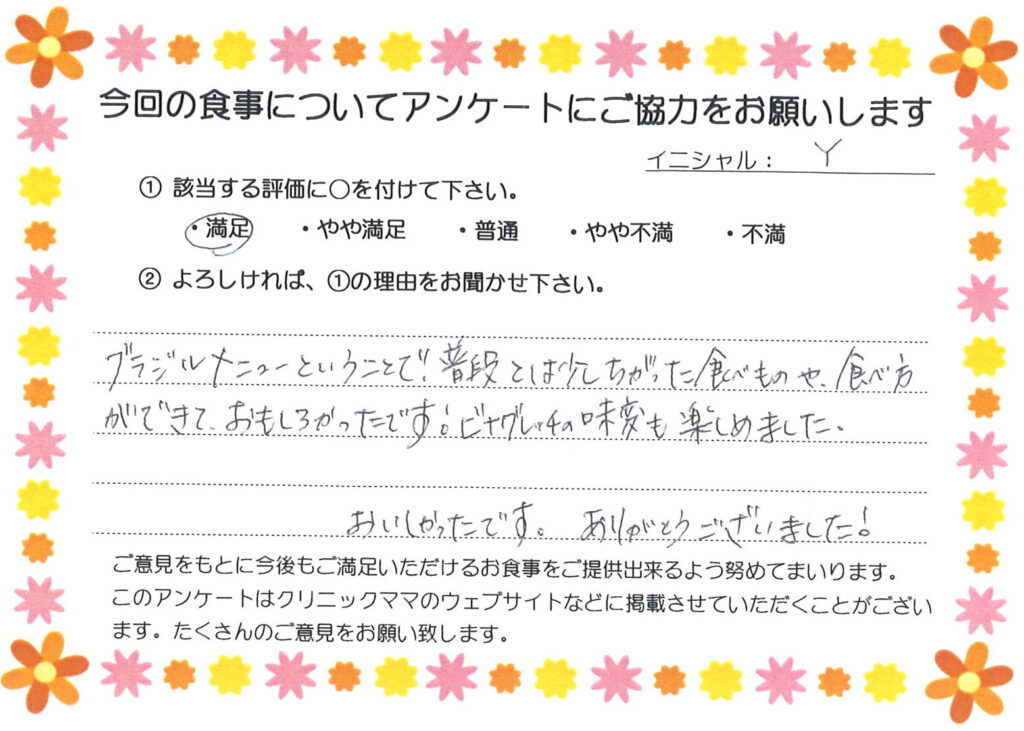 今回の食事についてアンケートにご協力をお願いします
イニシャル： Y
① 該当する評価に〇を付けて下さい。
・満足 ・やや満足 ・普通 ・やや不満 ・不満
② よろしければ、①の理由をお聞かせ下さい。
ブラジルメニューということで！普段とは少しちがった食べものや、食べ方
ができて、おもしろかったです！ビナグレッチの味変も楽しめました。
おいしかったです。ありがとうございました！
ご意見をもとに今後もご満足いただけるお食事をご提供出来るよう努めてまいります。
このアンケートはクリニックママのウェブサイトなどに掲載させていただくことがござい
ます。たくさんのご意見をお願い致します。